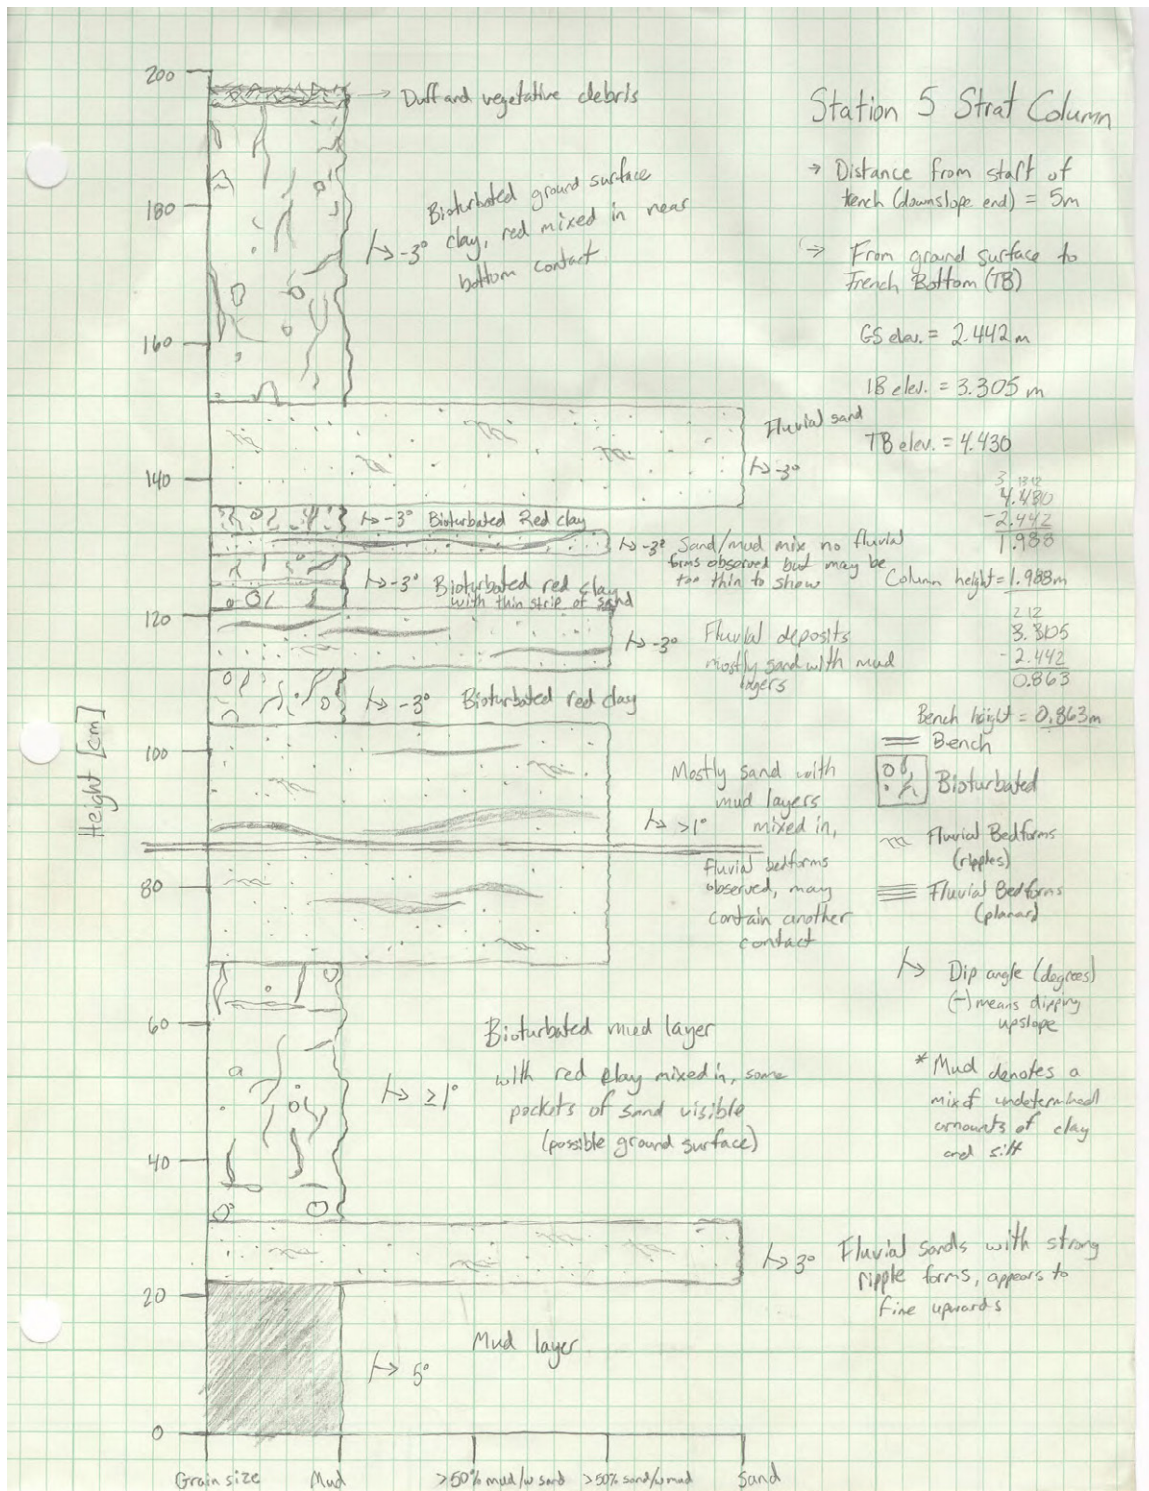 200
Duff and vegetative debris
Station 5 Strat Column
→ Distance from start of
trench (downslope end) = 5m
→ From ground surface to
Trench Bottom (TB)
GS elev. = 2.442 m
IB elev. = 3.305 m
TB elev. = 4.430
3 13 12
4.430
-2.442
1.988
Column height = 1.988m
2 12
3.305
- 2.442
0.863
Bench height = 0.863m
Bench
Bioturbated
Fluvial Bedforms
(ripples)
Fluvial Bedforms
(planar)
Dip angle (degrees)
(-) means dipping
upslope
* Mud denotes a
mix of undetermined
amounts of clay
and silt
180
-3°
Bioturbated ground surface
clay, red mixed in near
bottom contact
160
Fluvial sand
-3°
140
-3° Bioturbated Red clay
-3° Sand/mud mix no fluvial
forms observed but may be
too thin to show
-3° Bioturbated red clay
with thin strip of sand
120
-3° Fluvial deposits
mostly sand with mud
layers
-3° Bioturbated red clay
Height [cm]
100
Mostly sand with
mud layers
>1° mixed in,
fluvial bedforms
observed, may
contain another
contact
80
60
Bioturbated mud layer
≥1° with red clay mixed in, some
pockets of sand visible
(possible ground surface)
40
3° Fluvial sands with strong
ripple forms, appears to
fine upwards
20
Mud layer
5°
0
Grain size
Mud
>50% mud/w sand
>50% sand/w mud
Sand